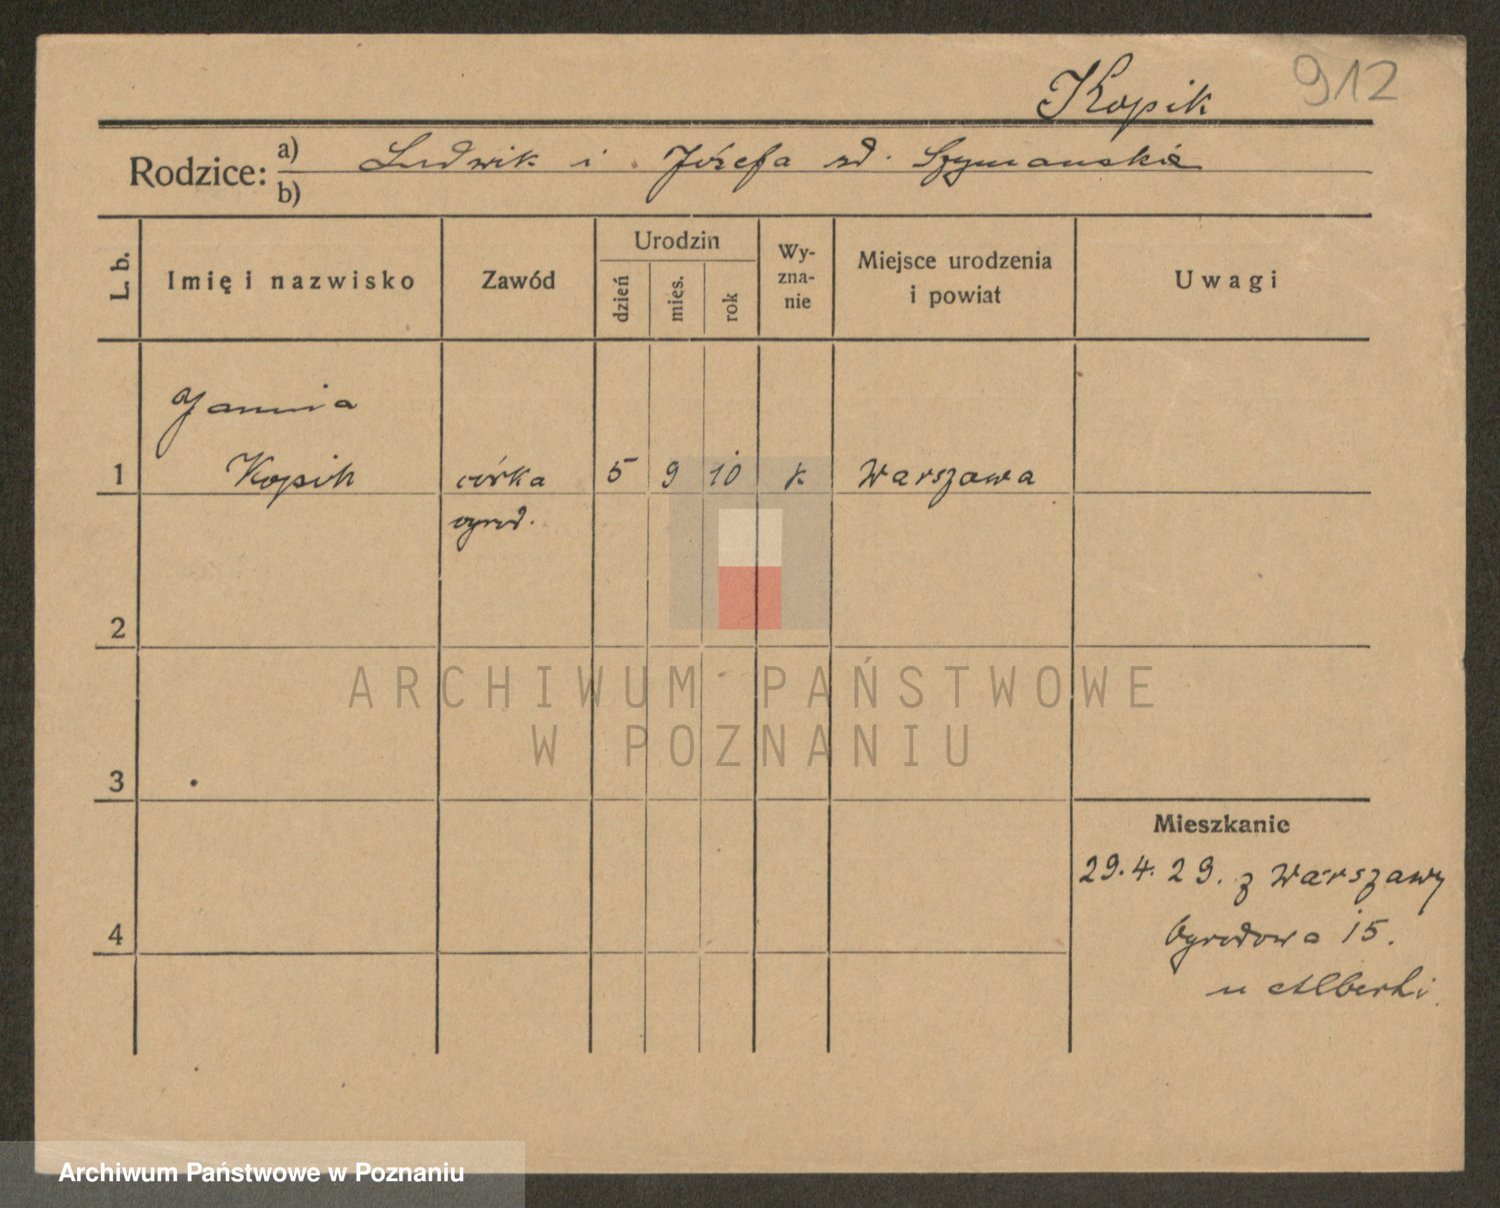 Kopik 912
Rodzice: a) Ludwik i Józefa zd. Szymańskie
b)
L. b. Imię i nazwisko Zawód Urodzin dzień mies. rok Wyznanie Miejsce urodzenia i powiat Uwagi
Janina
1 Kopik córka 5 9 10 k. Warszawa
ogrod.
2
ARCHIWUM PAŃSTWOWE
W POZNANIU
3
Mieszkanie
29.4.29. z Warszawy
4 Ogrodowa 15.
u Alberti
Archiwum Państwowe w Poznaniu